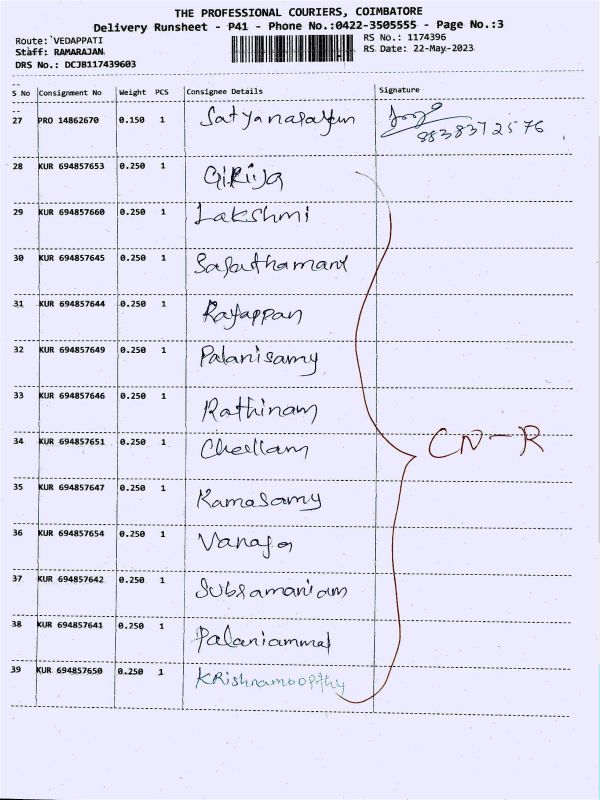 THE PROFESSIONAL COURIERS, COIMBATORE
Delivery Runsheet - P41 - Phone No.:0422-3505555 - Page No.:3
Route: VEDAPPATI RS No.: 1174396
Staff: RAMARAJAN RS Date: 22-May-2023
DRS No.: DCJB117439603
S No Consignment No Weight PCS Consignee Details Signature
27 PRO 14862670 0.150 1 Satyanarayan
8838372576
28 KUR 694857653 0.250 1 GiRija
29 KUR 694857660 0.250 1 Lakshmi
30 KUR 694857645 0.250 1
31 KUR 694857644 0.250 1 Rayappan
32 KUR 694857649 0.250 1 Palanisamy
33 KUR 694857646 0.250 1 Rathinam
34 KUR 694857651 0.250 1 Chellam
CN-R
35 KUR 694857647 0.250 1 Ramasamy
36 KUR 694857654 0.250 1 Vanaja
37 KUR 694857642 0.250 1 Subramaniam
38 KUR 694857641 0.250 1 Palaniammal
39 KUR 694857650 0.250 1 KRishnamoopthy